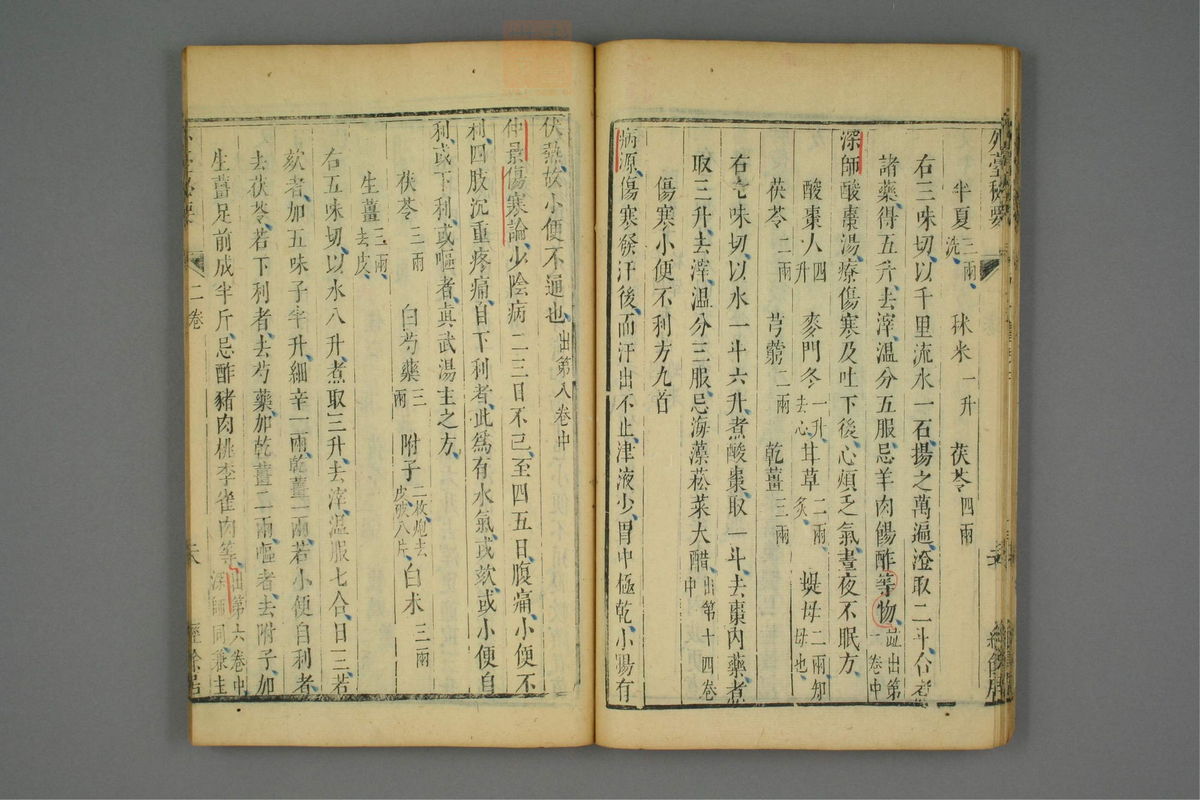 外臺秘要
半夏三兩洗 秫米一升 茯苓四兩
右三味切以千里流水一石揚之萬遍澄取二斗合煮
諸藥得五升去滓溫分五服忌羊肉餳酢等物並出第一卷中
深師酸棗湯療傷寒及吐下後心煩乏氣晝夜不眠方
酸棗人四升 麥門冬一升去心 甘草二兩炙 蝭母二兩知母也
茯苓二兩 芎藭二兩 乾薑三兩
右七味切以水一斗六升煮酸棗取一斗去棗內藥煮
取三升去滓溫分三服忌海藻菘菜大醋出第十四卷中
傷寒小便不利方九首
病源傷寒發汗後而汗出不止津液少胃中極乾小腸有
伏熱故小便不通也出第八卷中
仲景傷寒論少陰病二三日不已至四五日腹痛小便不
利四肢沉重疼痛自下利者此為有水氣或欬或小便自
利或下利或嘔者真武湯主之方
茯苓三兩 白芍藥三兩 附子二枚炮去皮破八片 白朮三兩
生薑三兩去皮
右五味切以水八升煮取三升去滓溫服七合日三若
欬者加五味子半升細辛一兩乾薑一兩若小便自利者
去茯苓若下利者去芍藥加乾薑二兩嘔者去附子加
生薑足前成半斤忌酢豬肉桃李雀肉等出第六卷中深師同兼主
二卷